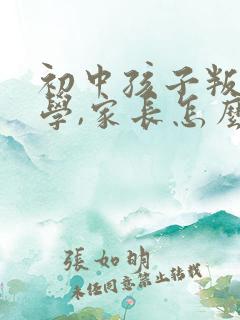 初中孩子叛
學,家長怎麼
張如明
未經同意禁止轉載